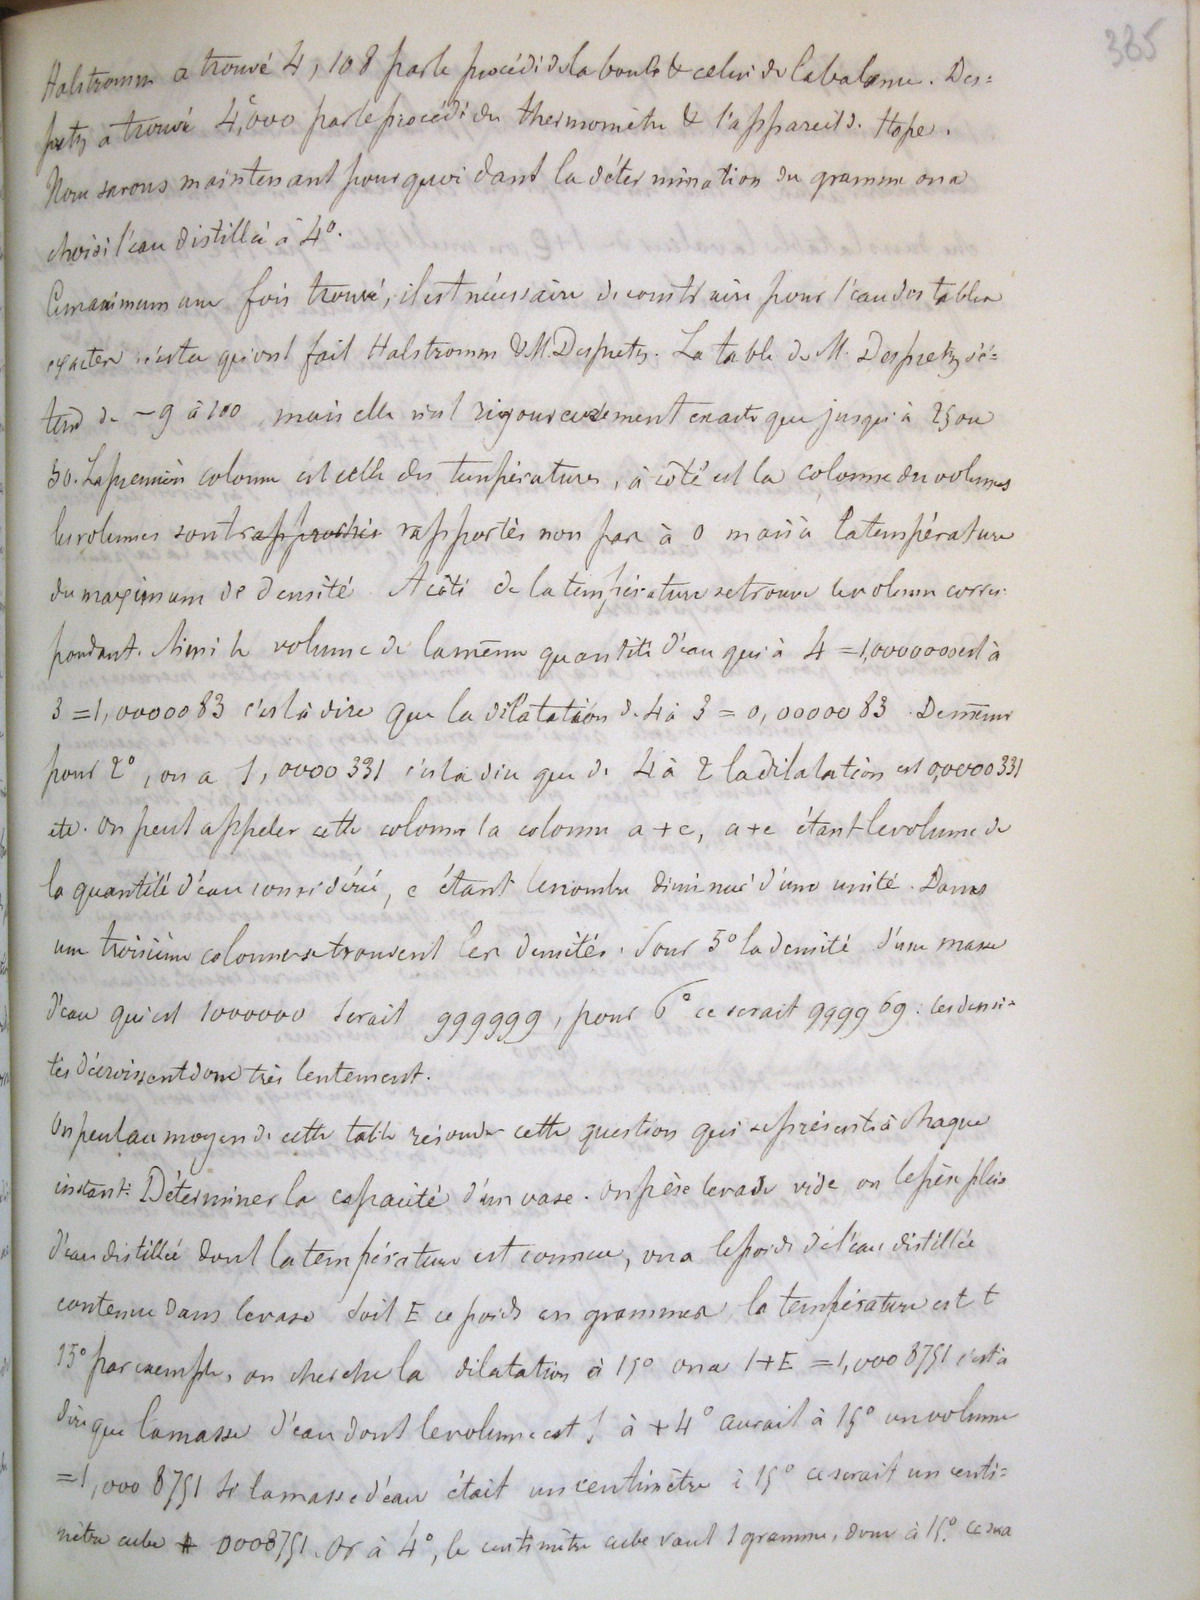 385
Halstromm a trouvé 4,108 par le procédé de la boule & celui de la balance. Des=
pretz a trouvé 4,000 par le procédé du thermomètre & l'appareil d. Hope.
Nous savons maintenant pourquoi dans la détermination du gramme on a
choisi l'eau distillée à 4°.
Ce maximum une fois trouvé, il est nécessaire de construire pour l'eau des tables
exactes c'est ce qu'ont fait Halstromm & M. Despretz. La table de M. Despretz s'é=
tend de -9 à 100 mais elle n'est rigoureusement exacte que jusqu'à 25 ou
30. La première colonne est celle des températures, à côté est la colonne des volumes
les volumes sont rapprochés rapportés non pas à 0 mais à la température
du maximum de densité. A côté de la température se trouve le volume corres-
pondant. Ainsi le volume de la même quantité d'eau qui à 4 = 1,0000000 est à
3 = 1,0000083 c'est à dire que la dilatation d. 4 à 3 = 0,0000083. De même
pour 2°, on a 1,0000331 c'est à dire que de 4 à 2 la dilatation est 0,0000331
etc. On peut appeler cette colonne la colonne a+e, a+e étant le volume de
la quantité d'eau considérée, e étant le nombre diminué d'une unité. Dans
une troisième colonne se trouvent les densités. Pour 5° la densité d'une masse
d'eau qui est 1000000 serait 999999, pour 6° ce serait 999969 : les densi=
tés décroissent donc très lentement.
On peut au moyen de cette table résoudre cette question qui se présente à chaque
instant: Déterminer la capacité d'un vase. On pèse le vase vide on le pèse plein
d'eau distillée dont la température est connue, on a le poids de l'eau distillée
contenue dans le vase Soit E ce poids en grammes la température est t
15° par exemple, on cherche la dilatation à 15° on a 1+E = 1,0008751 c'est à
dire que la masse d'eau dont le volume est 1 à +4° aurait à 15° un volume
= 1,0008751 Si la masse d'eau était un centimètre à 15° ce serait un centi=
mètre cube 0008751. Or à 4°, le centimètre cube vaut 1 gramme, donc à 15° ce sera